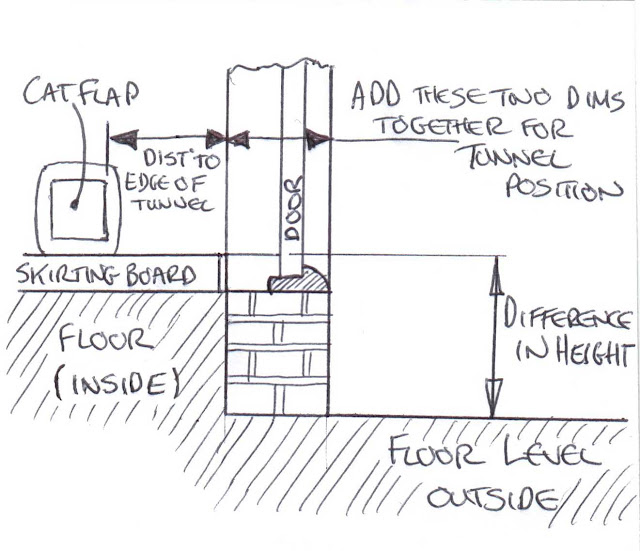 CAT FLAP
ADD THESE TWO DIMS
TOGETHER FOR
TUNNEL
POSITION
DIST TO
EDGE OF
TUNNEL
DOOR
SKIRTING BOARD
FLOOR
(INSIDE)
DIFFERENCE
IN HEIGHT
FLOOR LEVEL
OUTSIDE